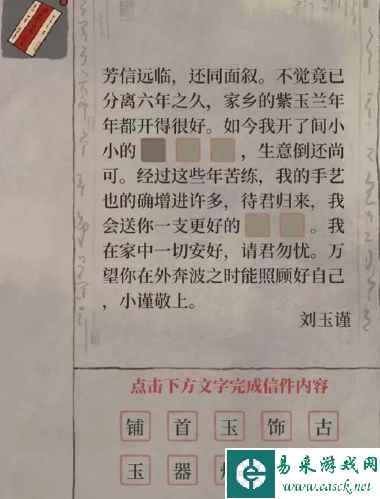 芳信远临，还同面叙。不觉竟已
分离六年之久，家乡的紫玉兰年
年都开得很好。如今我开了间小
小的 ，生意倒还尚
可。经过这些年苦练，我的手艺
也的确增进许多，待君归来，我
会送你一支更好的 。我
在家中一切安好，请君勿忧。万
望你在外奔波之时能照顾好自己
，小谨敬上。
刘玉谨
点击下方文字完成信件内容
铺 首 玉 饰 古
玉 器
易采游戏网